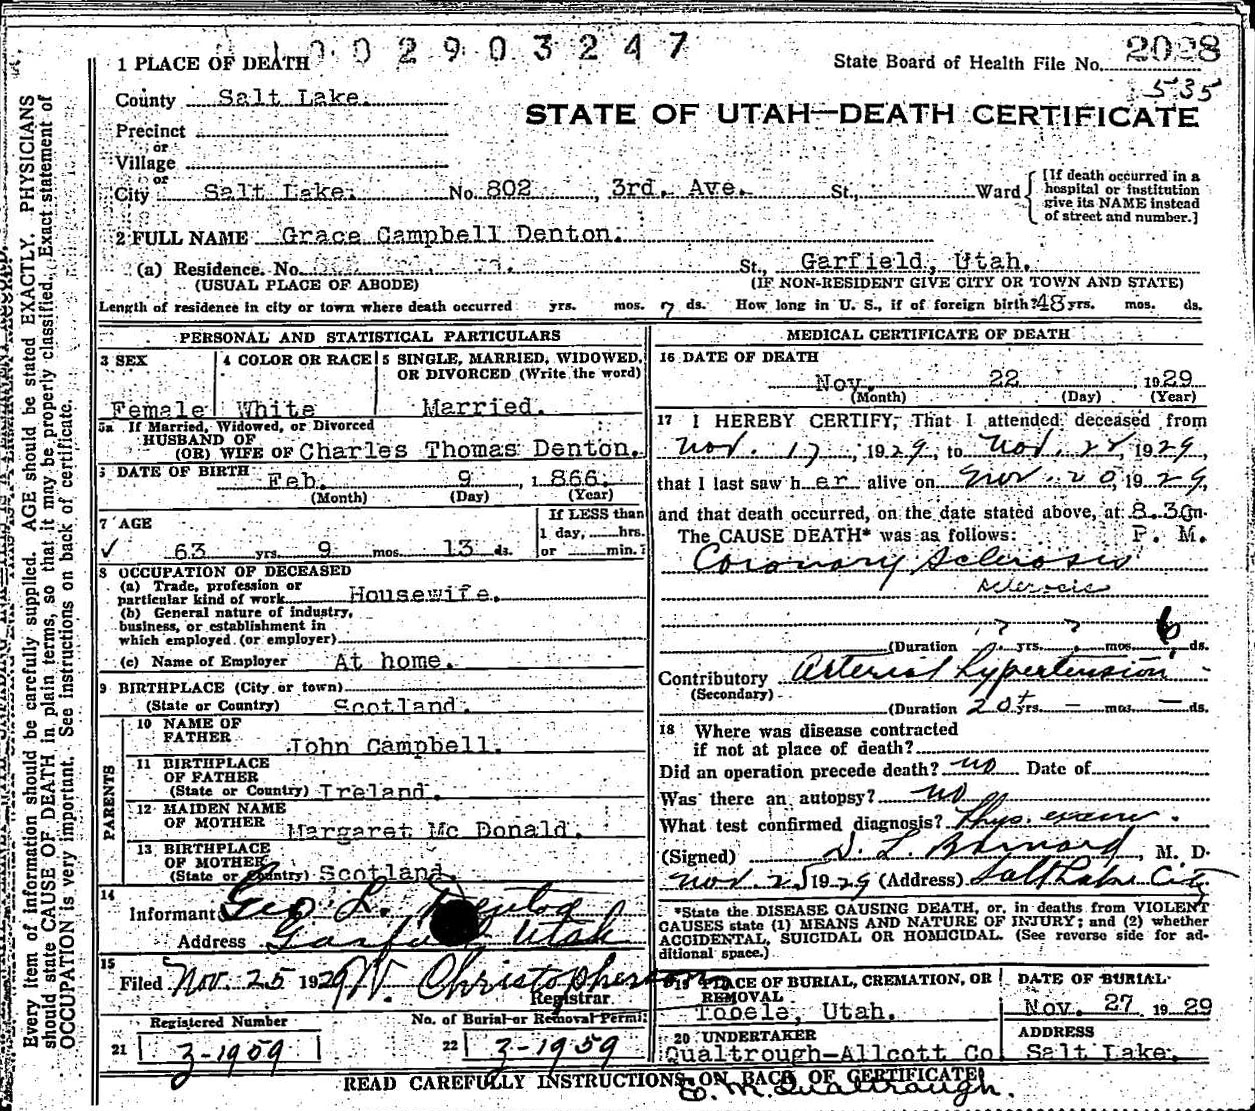 002903247
1 PLACE OF DEATH
State Board of Health File No. 2028
535
County Salt Lake.
STATE OF UTAH—DEATH CERTIFICATE
Precinct
or
Village
or
City Salt Lake. No. 802, 3rd. Ave. St., Ward
[If death occurred in a hospital or institution give its NAME instead of street and number.]
2 FULL NAME Grace Campbell Denton.
(a) Residence. No. St., Garfield, Utah.
(USUAL PLACE OF ABODE) (IF NON-RESIDENT GIVE CITY OR TOWN AND STATE)
Length of residence in city or town where death occurred yrs. mos. 7 ds. How long in U. S., if of foreign birth? 48 yrs. mos. ds.
PERSONAL AND STATISTICAL PARTICULARS
3 SEX
Female
4 COLOR OR RACE
White
5 SINGLE, MARRIED, WIDOWED,
OR DIVORCED (Write the word)
Married.
5a If Married, Widowed, or Divorced
HUSBAND OF
(OR) WIFE OF Charles Thomas Denton.
6 DATE OF BIRTH
Feb. 9, 1866.
(Month) (Day) (Year)
7 AGE
✓ 63 yrs. 9 mos. 13 ds.
If LESS than
1 day, hrs.
or min.?
8 OCCUPATION OF DECEASED
(a) Trade, profession or
particular kind of work Housewife.
(b) General nature of industry,
business, or establishment in
which employed (or employer)
(c) Name of Employer At home.
9 BIRTHPLACE (City or town)
(State or Country) Scotland.
PARENTS
10 NAME OF
FATHER John Campbell.
11 BIRTHPLACE
OF FATHER
(State or Country) Ireland.
12 MAIDEN NAME
OF MOTHER Margaret Mc Donald.
13 BIRTHPLACE
OF MOTHER
(State or Country) Scotland.
14
Informant Geo L. Denton
Address Garfield Utah
15
Filed Nov. 25 1929 W. Christopherson
Registrar
Registered Number
21 3-1959
No. of Burial or Removal Permit
22 3-1959
MEDICAL CERTIFICATE OF DEATH
16 DATE OF DEATH
Nov. 22 1929
(Month) (Day) (Year)
17 I HEREBY CERTIFY, That I attended deceased from
Nov. 17, 1929, to Nov. 22, 1929,
that I last saw her alive on Nov. 20, 1929,
and that death occurred, on the date stated above, at 8.30 m.
The CAUSE DEATH* was as follows: P. M.
Coronary Sclerosis
sclerosis
(Duration ? yrs. ? mos. 6 ds.
Contributory Arterial hypertension
(Secondary)
(Duration 20+ yrs. — mos. — ds.
18 Where was disease contracted
if not at place of death?
Did an operation precede death? no Date of
Was there an autopsy? no
What test confirmed diagnosis? Phys. exam.
(Signed) D. L. Barnard, M. D.
Nov. 25 1929 (Address) Salt Lake City
*State the DISEASE CAUSING DEATH, or, in deaths from VIOLENT
CAUSES state (1) MEANS AND NATURE OF INJURY; and (2) whether
ACCIDENTAL, SUICIDAL OR HOMICIDAL. (See reverse side for ad-
ditional space.)
19 PLACE OF BURIAL, CREMATION, OR
REMOVAL
Tooele, Utah.
DATE OF BURIAL
Nov. 27 1929
20 UNDERTAKER
Qualtrough-Allcott Co
ADDRESS
Salt Lake.
READ CAREFULLY INSTRUCTIONS ON BACK OF CERTIFICATE
S. M. Qualtrough.
Every item of information should be carefully supplied. AGE should be stated EXACTLY. PHYSICIANS
should state CAUSE OF DEATH in plain terms, so that it may be properly classified. Exact statement of
OCCUPATION is very important. See instructions on back of certificate.